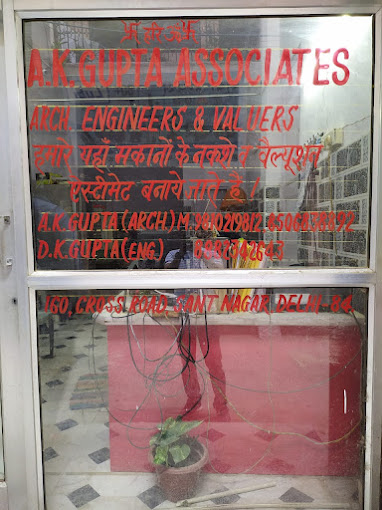 卐 हरि ॐ 卐
A.K. GUPTA ASSOCIATES
ARCH. ENGINEERS & VALUERS
हमारे यहाँ मकानों के नक्शे व वैल्यूशन
ऐस्टीमेट बनाये जाते है।
A.K. GUPTA (ARCH.) M. 9810219812, 8506858892
D.K. GUPTA (ENG.) 8882342643
160, CROSS ROAD, SANT NAGAR, DELHI-84